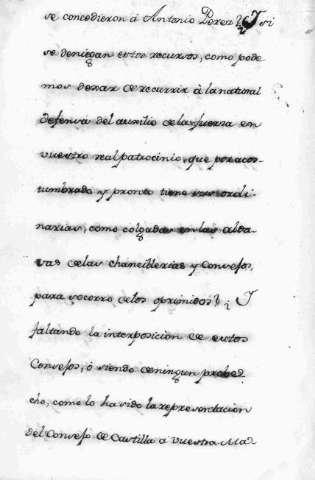 se concedieron á Antonio Perez? Y si
se deniegan estos recursos, como pode
mos dexar de recurrir à la natural
defensa del auxilio de la fuerza en
vuestro real patrocinio, que por acos-
tumbrado y pronto tiene sus ordi
narias, como colgadas en las alda
vas de las chancillerias y Consejos,
para socorro de los oprimidos? ¿Y
faltando la interposicion de estos
Consejos, ó siendo de ningun probe
cho, como lo ha sido la representacion
del Consejo de Castilla a vuestra Ma